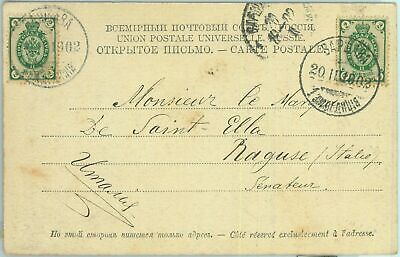 ВСЕМІРНЫЙ ПОЧТОВЫЙ СОЮЗЪ. РОССІЯ
UNION POSTALE UNIVERSELLE. RUSSIE.
ОТКРЫТОЕ ПИСЬМО. — CARTE POSTALE.
ВАРШАВА
20 II 1902
Monsieur le Mar
De Saint-Ella
Raguse (Italie)
Италія
Senateur
На этой сторонѣ пишется только адресъ. — Côté réservé exclusivement à l'adresse.